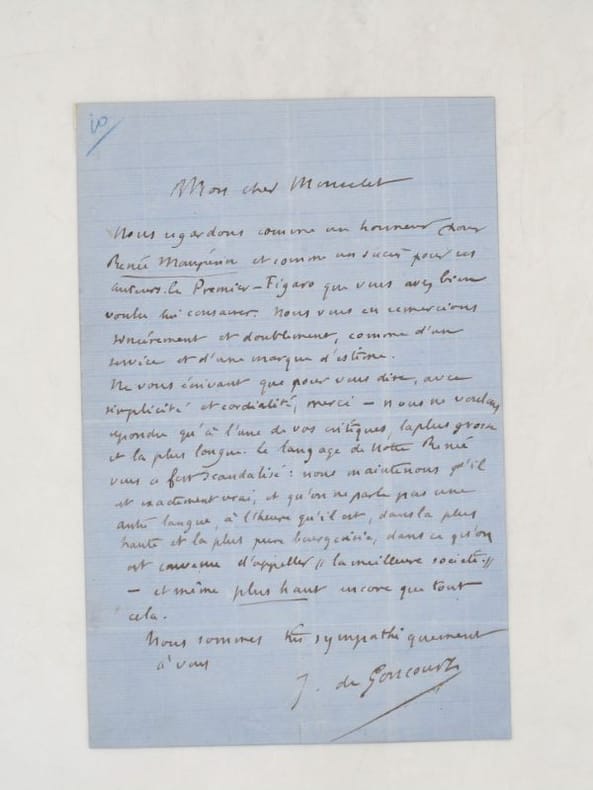 10
Mon cher Monselet
Nous regardons comme un honneur pour
Renée Mauperin et comme un succès pour ses
auteurs le Premier-Figaro que vous avez bien
voulu lui consacrer. Nous vous en remercions
sincèrement et doublement, comme d'un
service et d'une marque d'estime.
Ne vous écrivant que pour vous dire, avec
simplicité et cordialité, merci – nous ne voulons
répondre qu'à l'une de vos critiques, la plus grosse
et la plus longue. Le langage de notre Renée
vous a fort scandalisé : nous maintenons qu'il
est exactement vrai, et qu'on ne parle pas une
autre langue, à l'heure qu'il est, dans la plus
haute et la plus pure bourgeoisie, dans ce qu'on
est convenu d'appeller "la meilleure société"
– et même plus haut encore que tout
cela.
Nous sommes très sympathiquement
à vous
J. de Goncourt